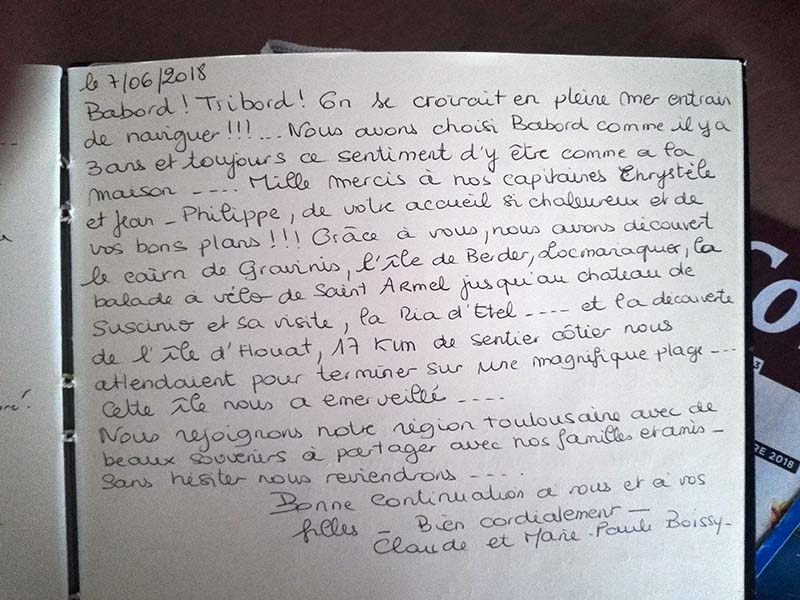 le 7/06/2018
Babord ! Tribord ! On se croirait en pleine mer entrain
de naviguer !!! ... Nous avons choisi Babord comme il y a
3 ans et toujours ce sentiment d'y être comme a la
maison ---- Mille mercis à nos capitaines Chrystèle
et Jean - Philippe, de votre accueil si chaleureux et de
vos bons plans !!! Grâce à vous, nous avons découvert
le cairn de Gravinis, l'île de Berder, Locmariaquer, la
balade à vélo de Saint Armel jusqu'au chateau de
Suscinio et sa visite, la Ria d'Etel ---- et la découverte
de l'île d'Houat, 17 Km de sentier côtier nous
attendaient pour terminer sur une magnifique plage ---
Cette île nous a emerveillé ----
Nous rejoignons notre région toulousaine avec de
beaux souvenirs à partager avec nos familles et amis -
Sans hésiter nous reviendrons ----
Bonne continuation a vous et a vos
filles - Bien cordialement -
Claude et Marie-Paule Boissy -
RE 2018